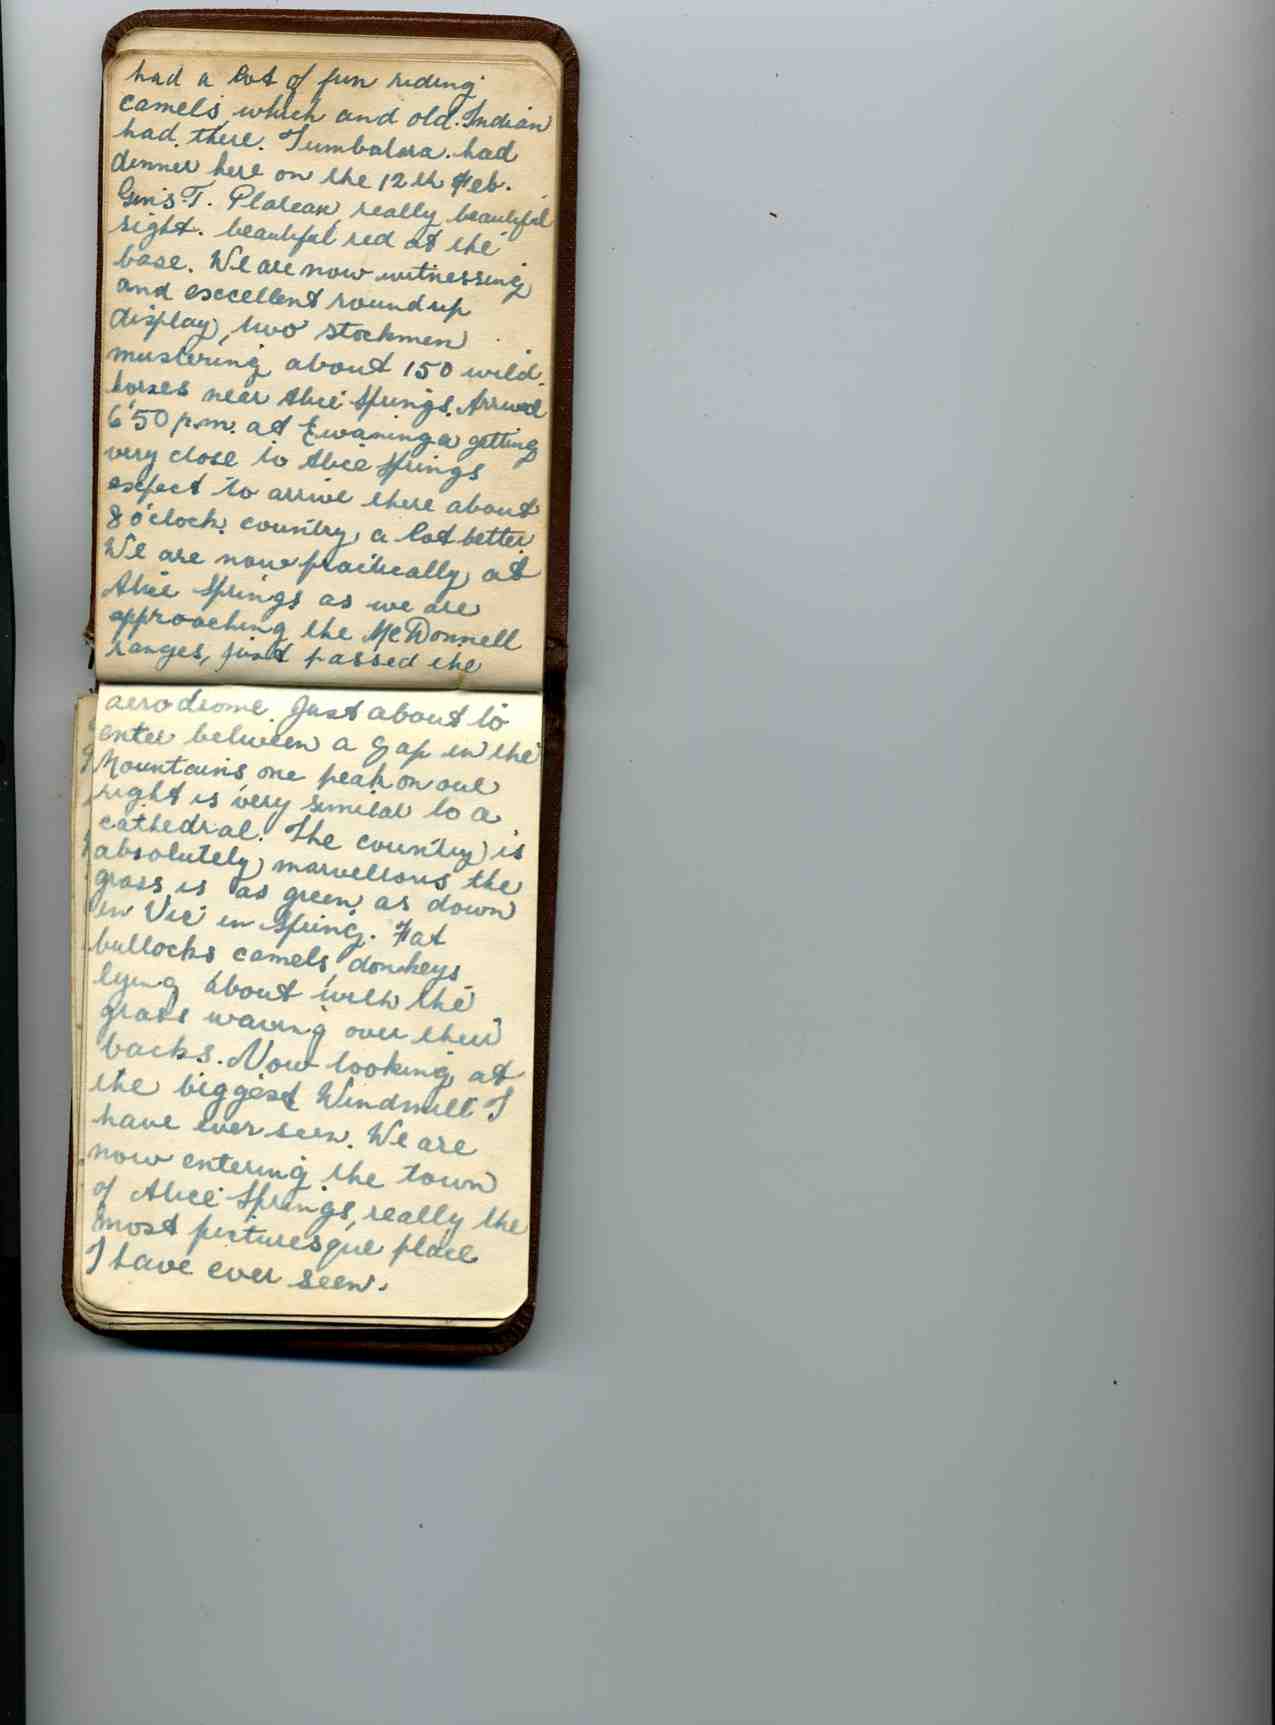 had a lot of fun riding
camels, which and old Indian
had there. Tumbalara. had
dinner here on the 12th Feb.
Gins T. Plateau, really beautiful
sight. beautiful red at the
base. We are now witnessing
and exccellent round up
display, two stockmen
mustering about 150 wild
horses near Alice Springs. Arrived
6'50 p.m. at Ewaninga getting
very close to Alice Springs
expect to arrive there about
8 o'clock. country, a lot better.
We are now practically, at
Alice Springs as we are
approaching the McDonnell
ranges, just passed the
aerodrome. Just about to
enter between a gap in the
Mountains one peak on our
right is very similar to a
cathedral. The country is
absolutely marvellous the
grass is as green as down
in Vic in Spring. Fat
bullocks camels, donkeys
lying about with the
grass waving over their
backs. Now looking at
the biggest Windmill I
have ever seen. We are
now entering the town
of Alice Springs, really the
most picturesque place
I have ever seen.